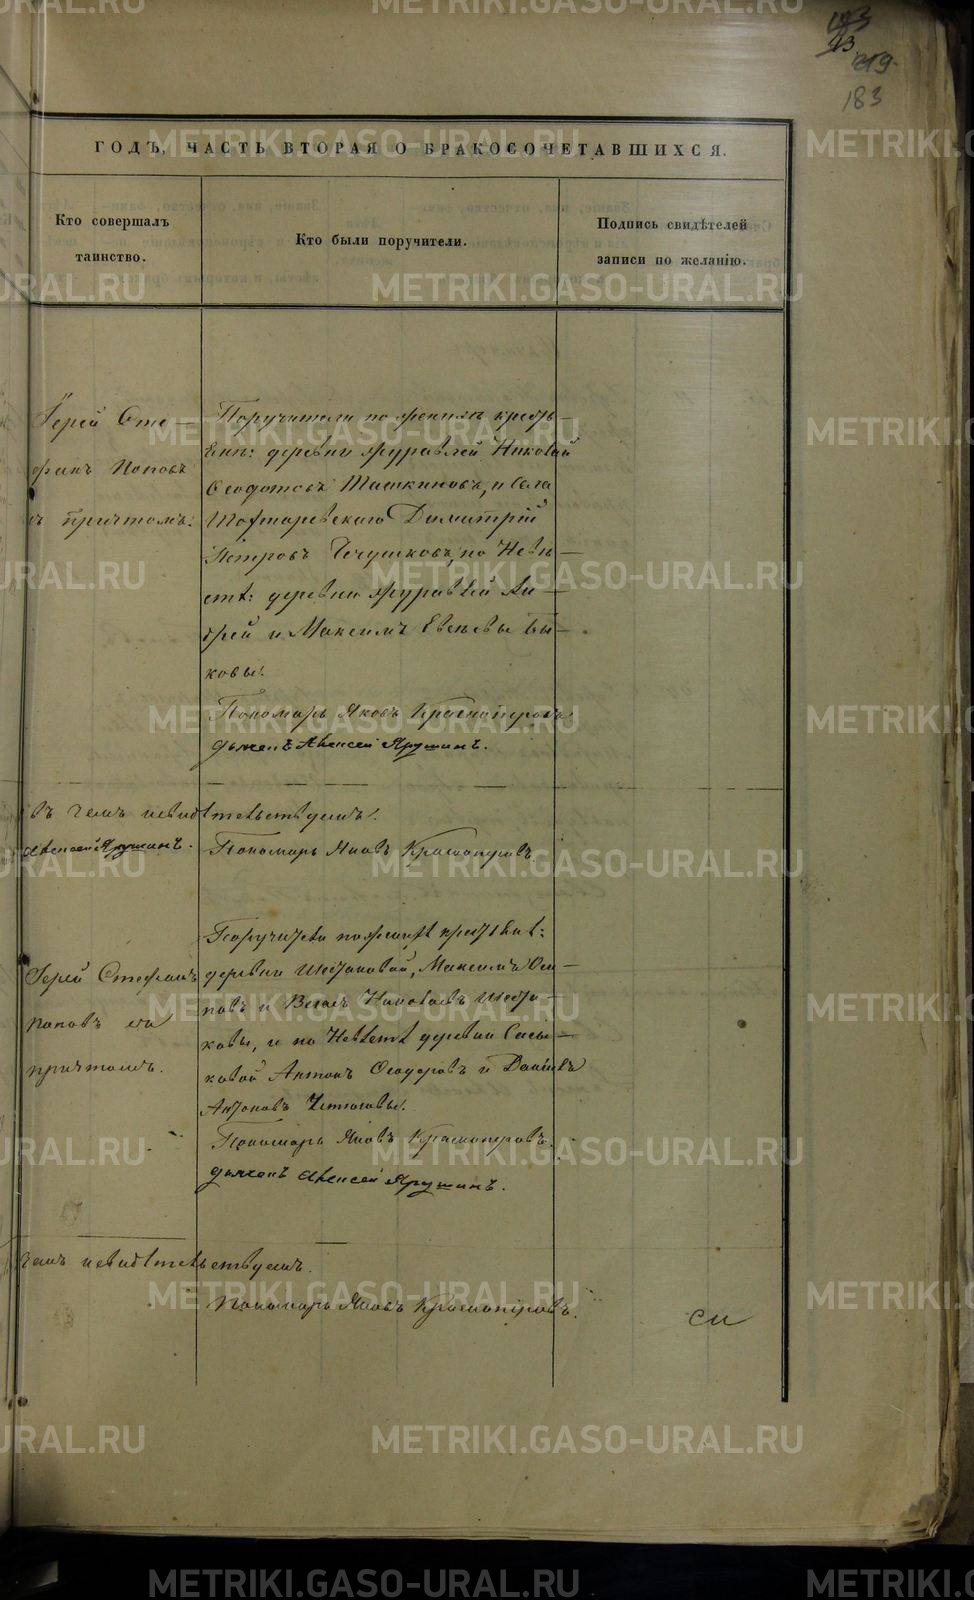 103
43
219
183
ГОДЪ, ЧАСТЬ ВТОРАЯ О БРАКОСОЧЕТАВШИХСЯ.
Кто совершалъ
таинство.
Кто были поручители.
Подпись свидѣтелей
записи по желанію.
Іерей Сте—
фанъ Поповъ
съ причтомъ.
Поручители по женихѣ кресть—
енн: деревни Журавлей Николай
Ѳеодотовъ Ташкиновъ, и села
Димитрій
Петровъ Чечушковъ, по Невѣ—
стѣ: деревни Журавлей Ан—
дрей и Максимъ Евсѣевы Бы—
ковы.
Пономарь Яковъ Красноперовъ
дьяченъ Алексей Ярушинъ.
въ чемъ и свидѣтельствуемъ.
Алексей Ярушинъ.
Пономарь Яковъ Красноперовъ.
Іерей Стефанъ
Поповъ съ
причтомъ.
Поручители по женихѣ крестьяне:
деревни Шестаковой, Максимъ Оси—
повъ и Николаевъ Шеста—
ковы, и по Невѣстѣ деревни Сысы—
ковой Антонъ Ѳеодоровъ и Даніилъ
Антоновъ Устюговы.
Пономарь Яковъ Красноперовъ.
дьяченъ Алексей Ярушинъ.
чемъ и свидѣтельствуемъ.
Пономарь Яковъ Красноперовъ.
METRIKI.GASO-URAL.RU